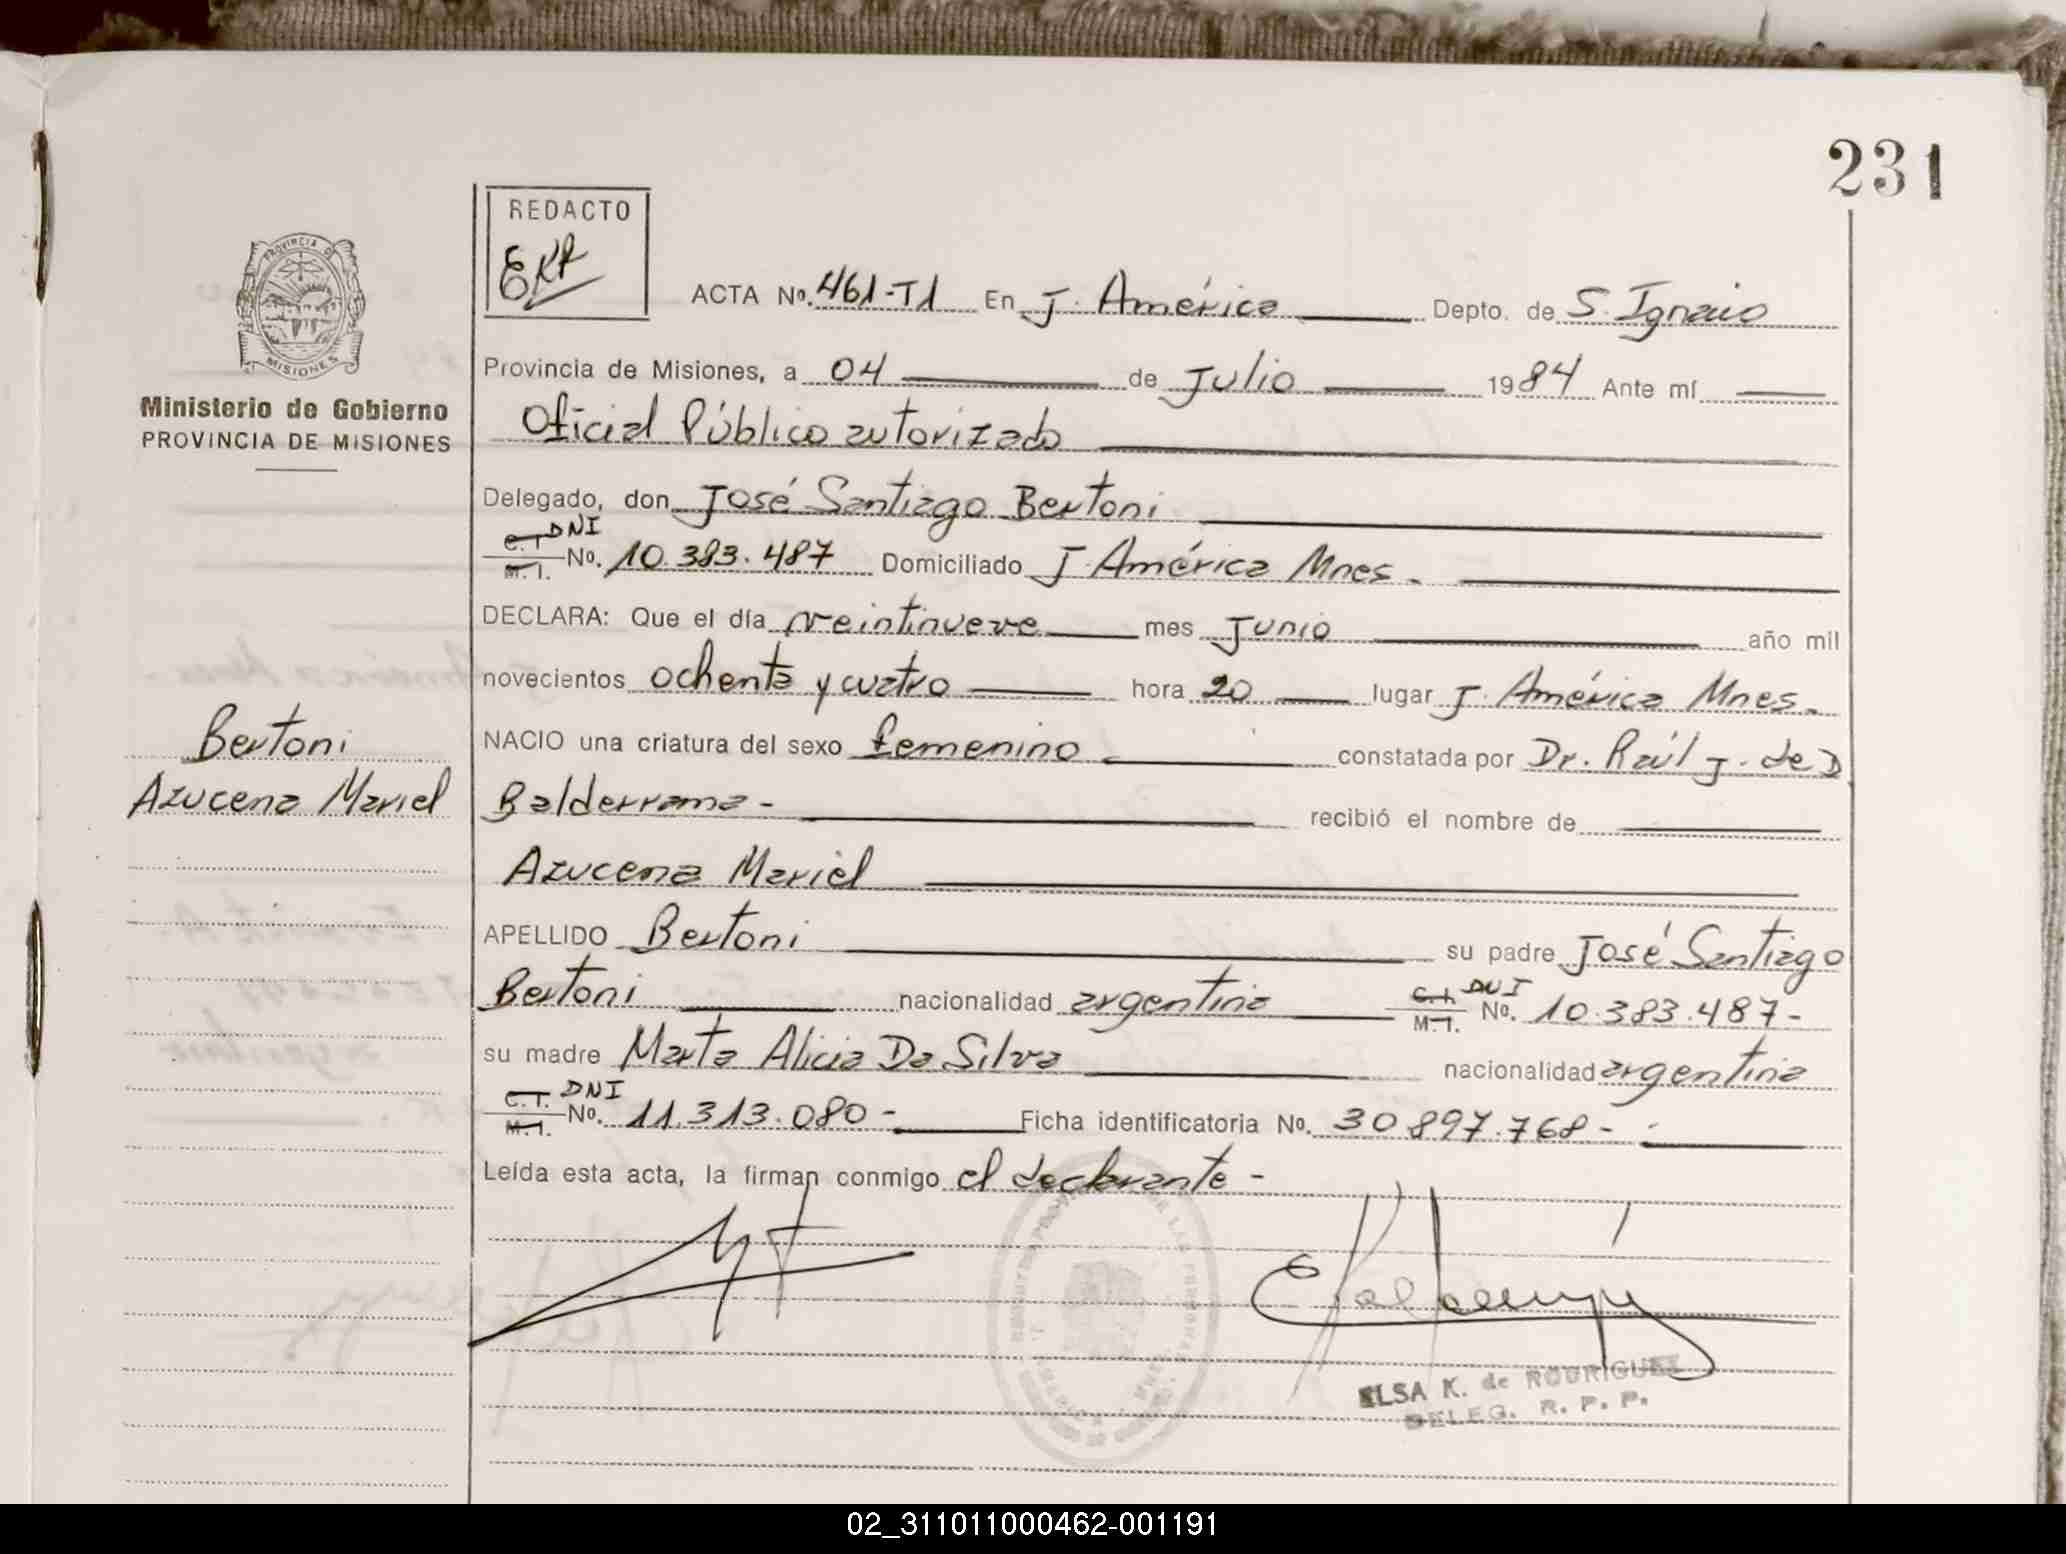 231
REDACTO
EKR
PROVINCIA DE
MISIONES
Ministerio de Gobierno
PROVINCIA DE MISIONES
ACTA No. 461-T1 En J. América Depto. de S. Ignacio
Provincia de Misiones, a 04 de Julio 1984 Ante mí
Oficial Público autorizado
Delegado, don José Santiago Bertoni
C.I. DNI
M.I. No. 10.383.487 Domiciliado J. América Mnes.
DECLARA: Que el día veintinueve mes Junio año mil
novecientos ochenta y cuatro hora 20 lugar J. América Mnes.
Bertoni
Azucena Mariel
NACIO una criatura del sexo femenino constatada por Dr. Raúl J. de D
Balderrama - recibió el nombre de
Azucena Mariel
APELLIDO Bertoni su padre José Santiago
Bertoni nacionalidad argentina C.I. DNI M.I. No. 10.383.487-
su madre Marta Alicia Da Silva nacionalidad argentina
C.I. DNI
M.I. No. 11.313.080- Ficha identificatoria No. 30897.768-
Leída esta acta, la firman conmigo el declarante -
ELSA K. de RODRIGUEZ
DELEG. R. P. P.
02_311011000462-001191